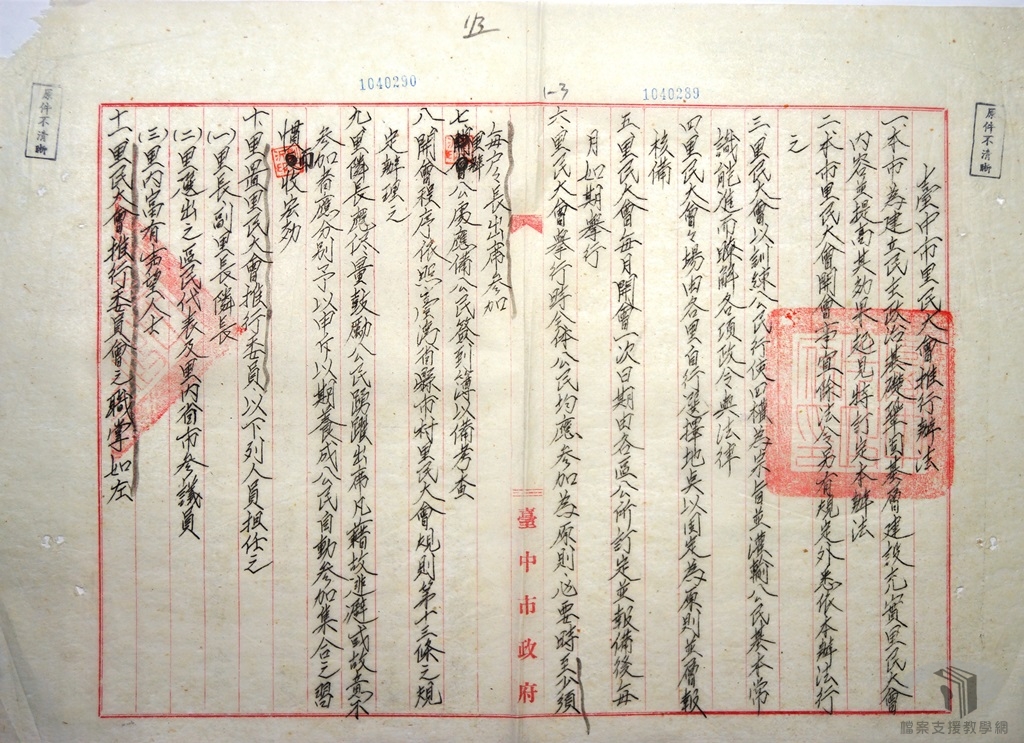 1/3
1040290
1040289
1-3
原件不清晰
原件不清晰
臺中市里民大會推行辦法
一本市為建立民主政治基礎鞏固基層建設充實里民大會
內容並提高其功果起見特訂定本辦法
二本市里民大會開會事宜除法令另有規定外悉依本辦法行
之
三里民大會以訓練公民行使四權為宗旨並灌輸公民基本常
識能進而瞭解各項政令典法律
四里民大會會場由各里自行選擇地點以固定為原則並層報
核備
五里民大會每月開會一次日期由各區公所訂定並報備後每
月如期舉行
六里民大會舉行時全体公民均應參加為原則必要時至少須
每戶戶長出席參加
七里辦公處應備公民簽到簿以備考查
八開會程序依照臺灣省縣市村里民大會規則第十三條之規
定辦理之
九里隣長應儘量鼓勵公民踴躍出席凡藉故進避或故意不
參加者應分别予以申斥以期養成公民自動參加集合之習
慣而收宏効
十里置里民大會推行委員以下列人員担任之
(一)里長副里長隣長
(二)里選出之區民代表及里內省市參議員
(三)里內富有声望人士
十一里民大會推行委員會之職掌如左
臺中市政府
檔案支援教學網